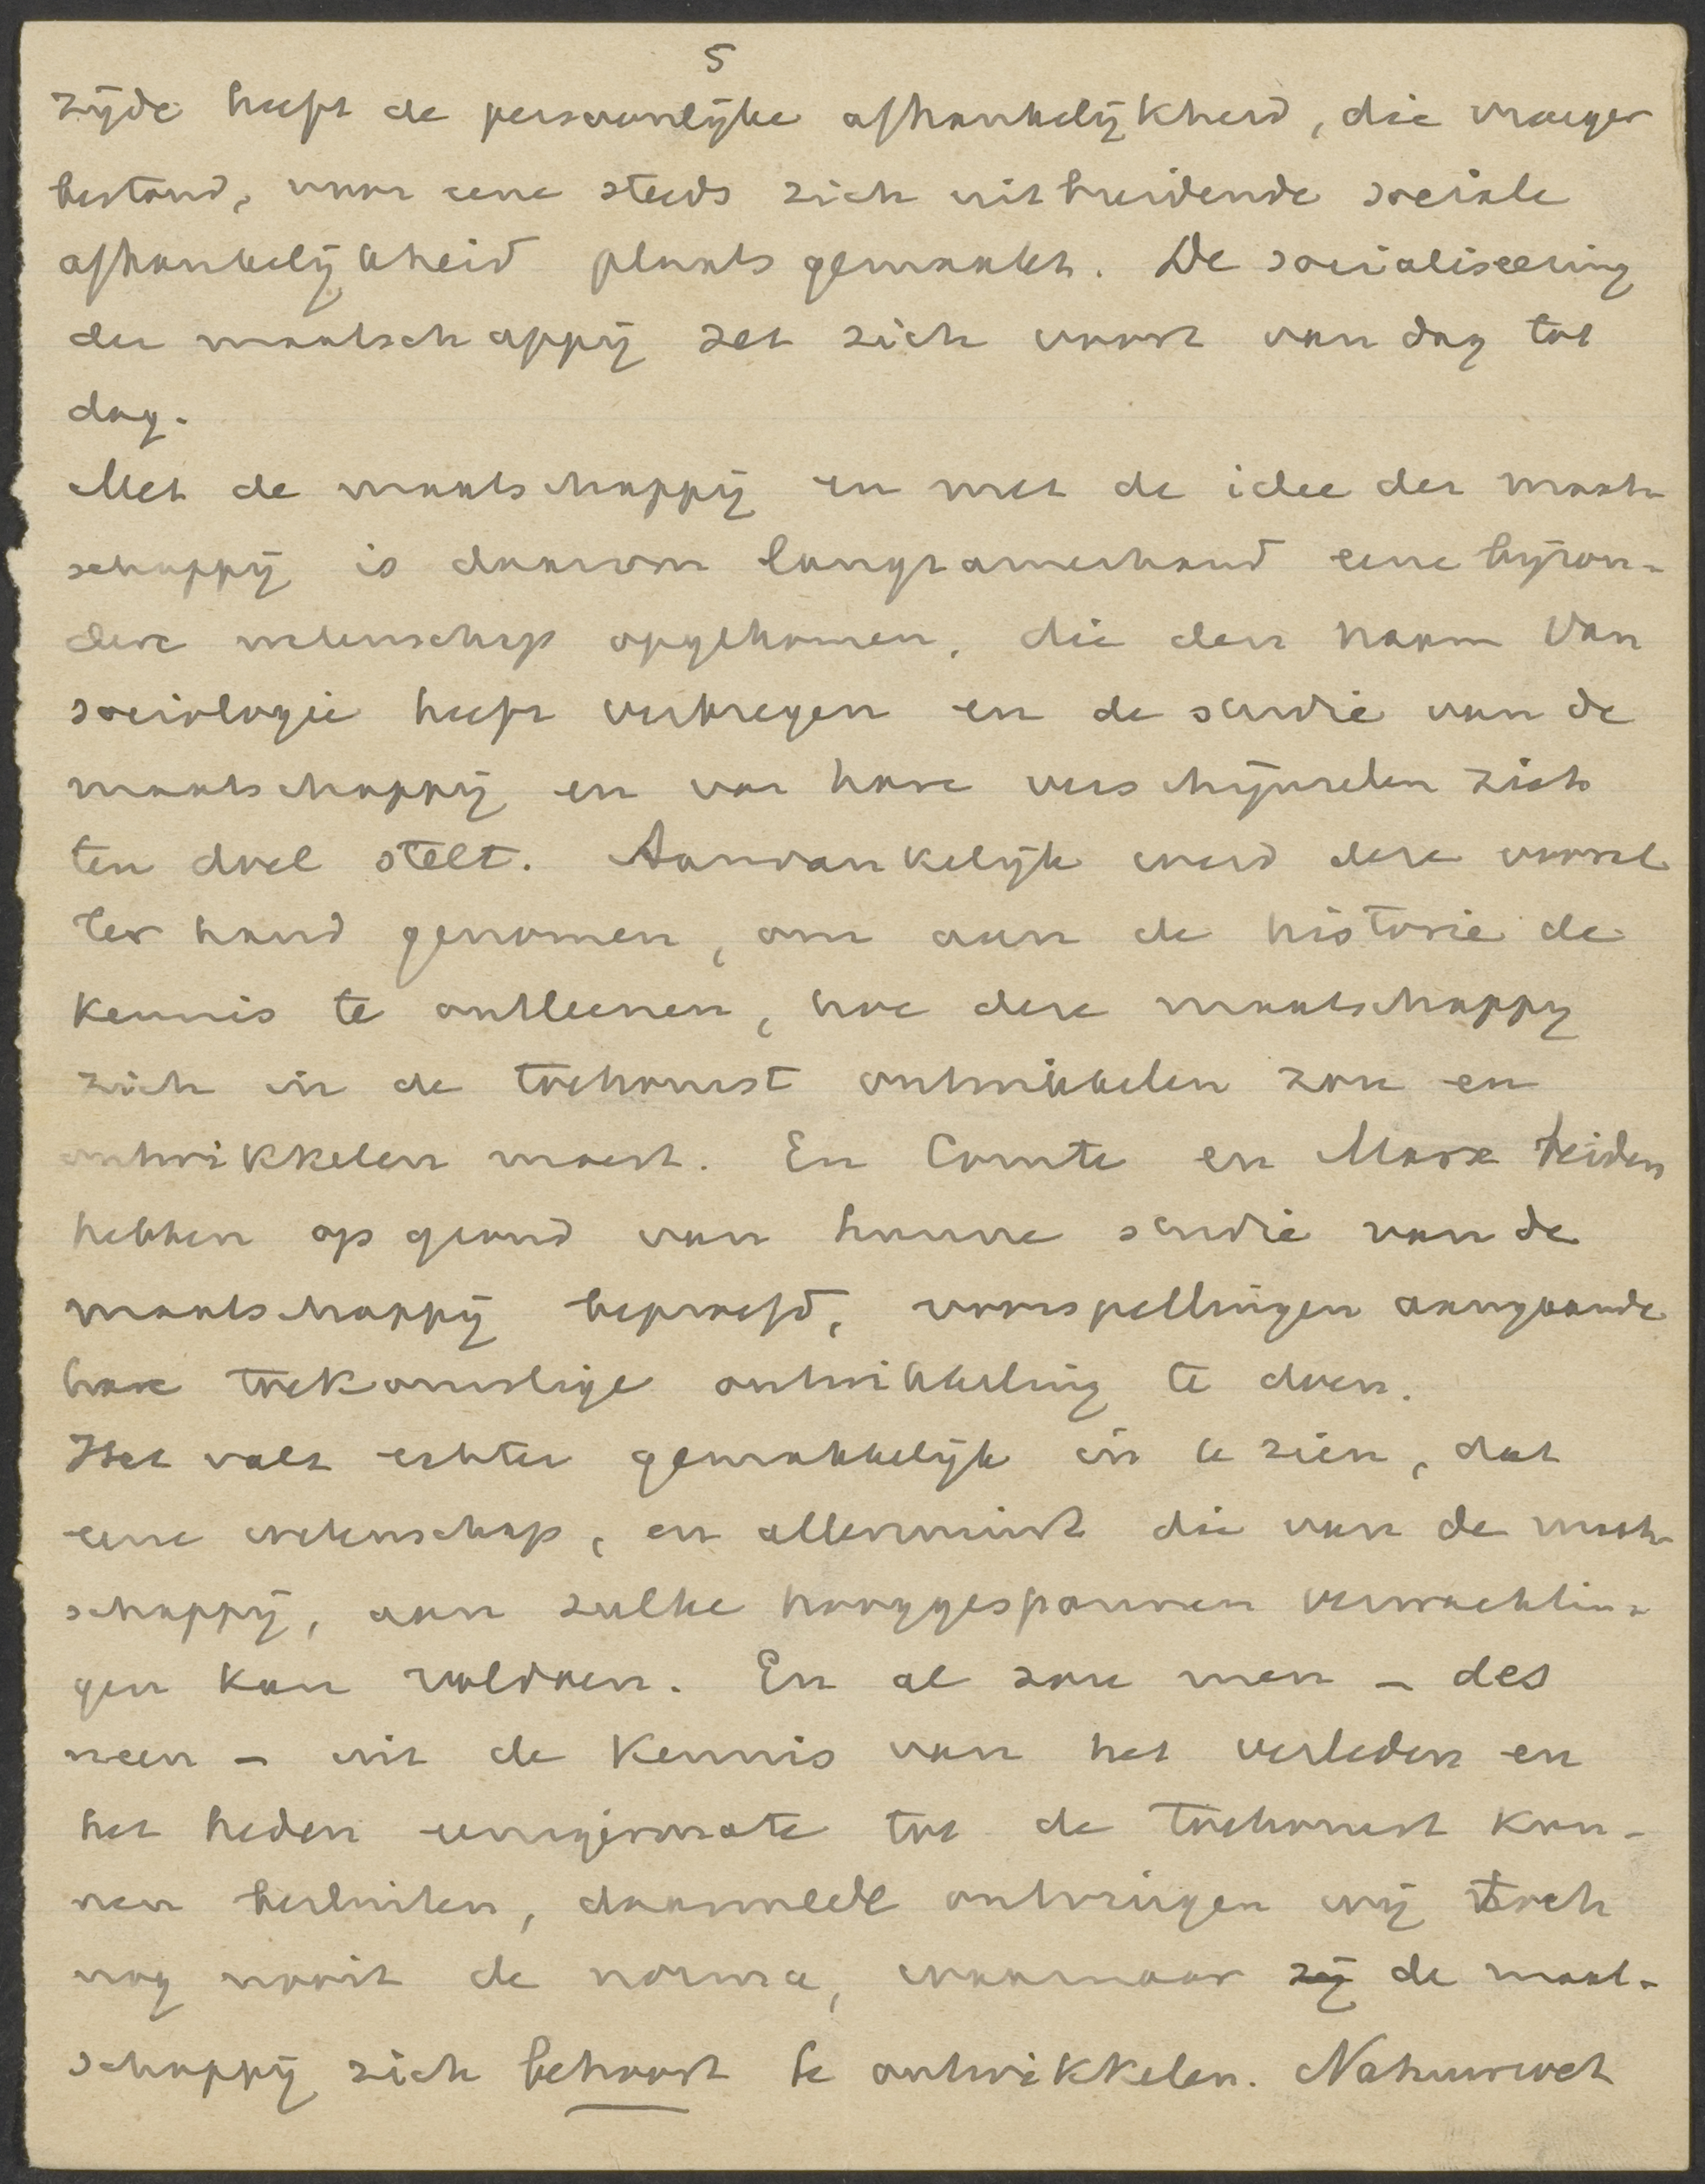 5
zijde heeft de persoonlijke afhankelijkheid, die vroeger
bestond, voor eene steeds zich uitbreidende sociale
afhankelijkheid plaats gemaakt. De socialiseering
der maatschappij zet zich voort van dag tot
dag.
Met de maatschappij en met de idee der maat-
schappij is daarom langzamerhand eene bijzon-
dere wetenschap opgekomen, die den naam van
sociologie heeft verkregen en de studie van de
maatschappij en van hare verschijnselen zich
ten doel stelt. Aanvankelijk werd deze vooral
ter hand genomen, om aan de historie de
kennis te ontleenen, hoe deze maatschappij
zich in de toekomst ontwikkelen zou en
ontwikkelen moest. En Comte en Marx beiden
hebben op grond van hunne studie van de
maatschappij beproefd, voorspellingen aangaande
hare toekomstige ontwikkeling te doen.
Het valt echter gemakkelijk in te zien, dat
eene wetenschap, en allerminst die van de maat-
schappij, aan zulke hooggespannen verwachtin-
gen kan voldoen. En al zou men – des
neen – uit de kennis van het verleden en
het heden eenigermate tot de toekomst kun-
nen besluiten, daarmede ontvingen wij toch
nog nooit de norma, waarnaar zij de maat-
schappij zich behoort te ontwikkelen. Natuurwet